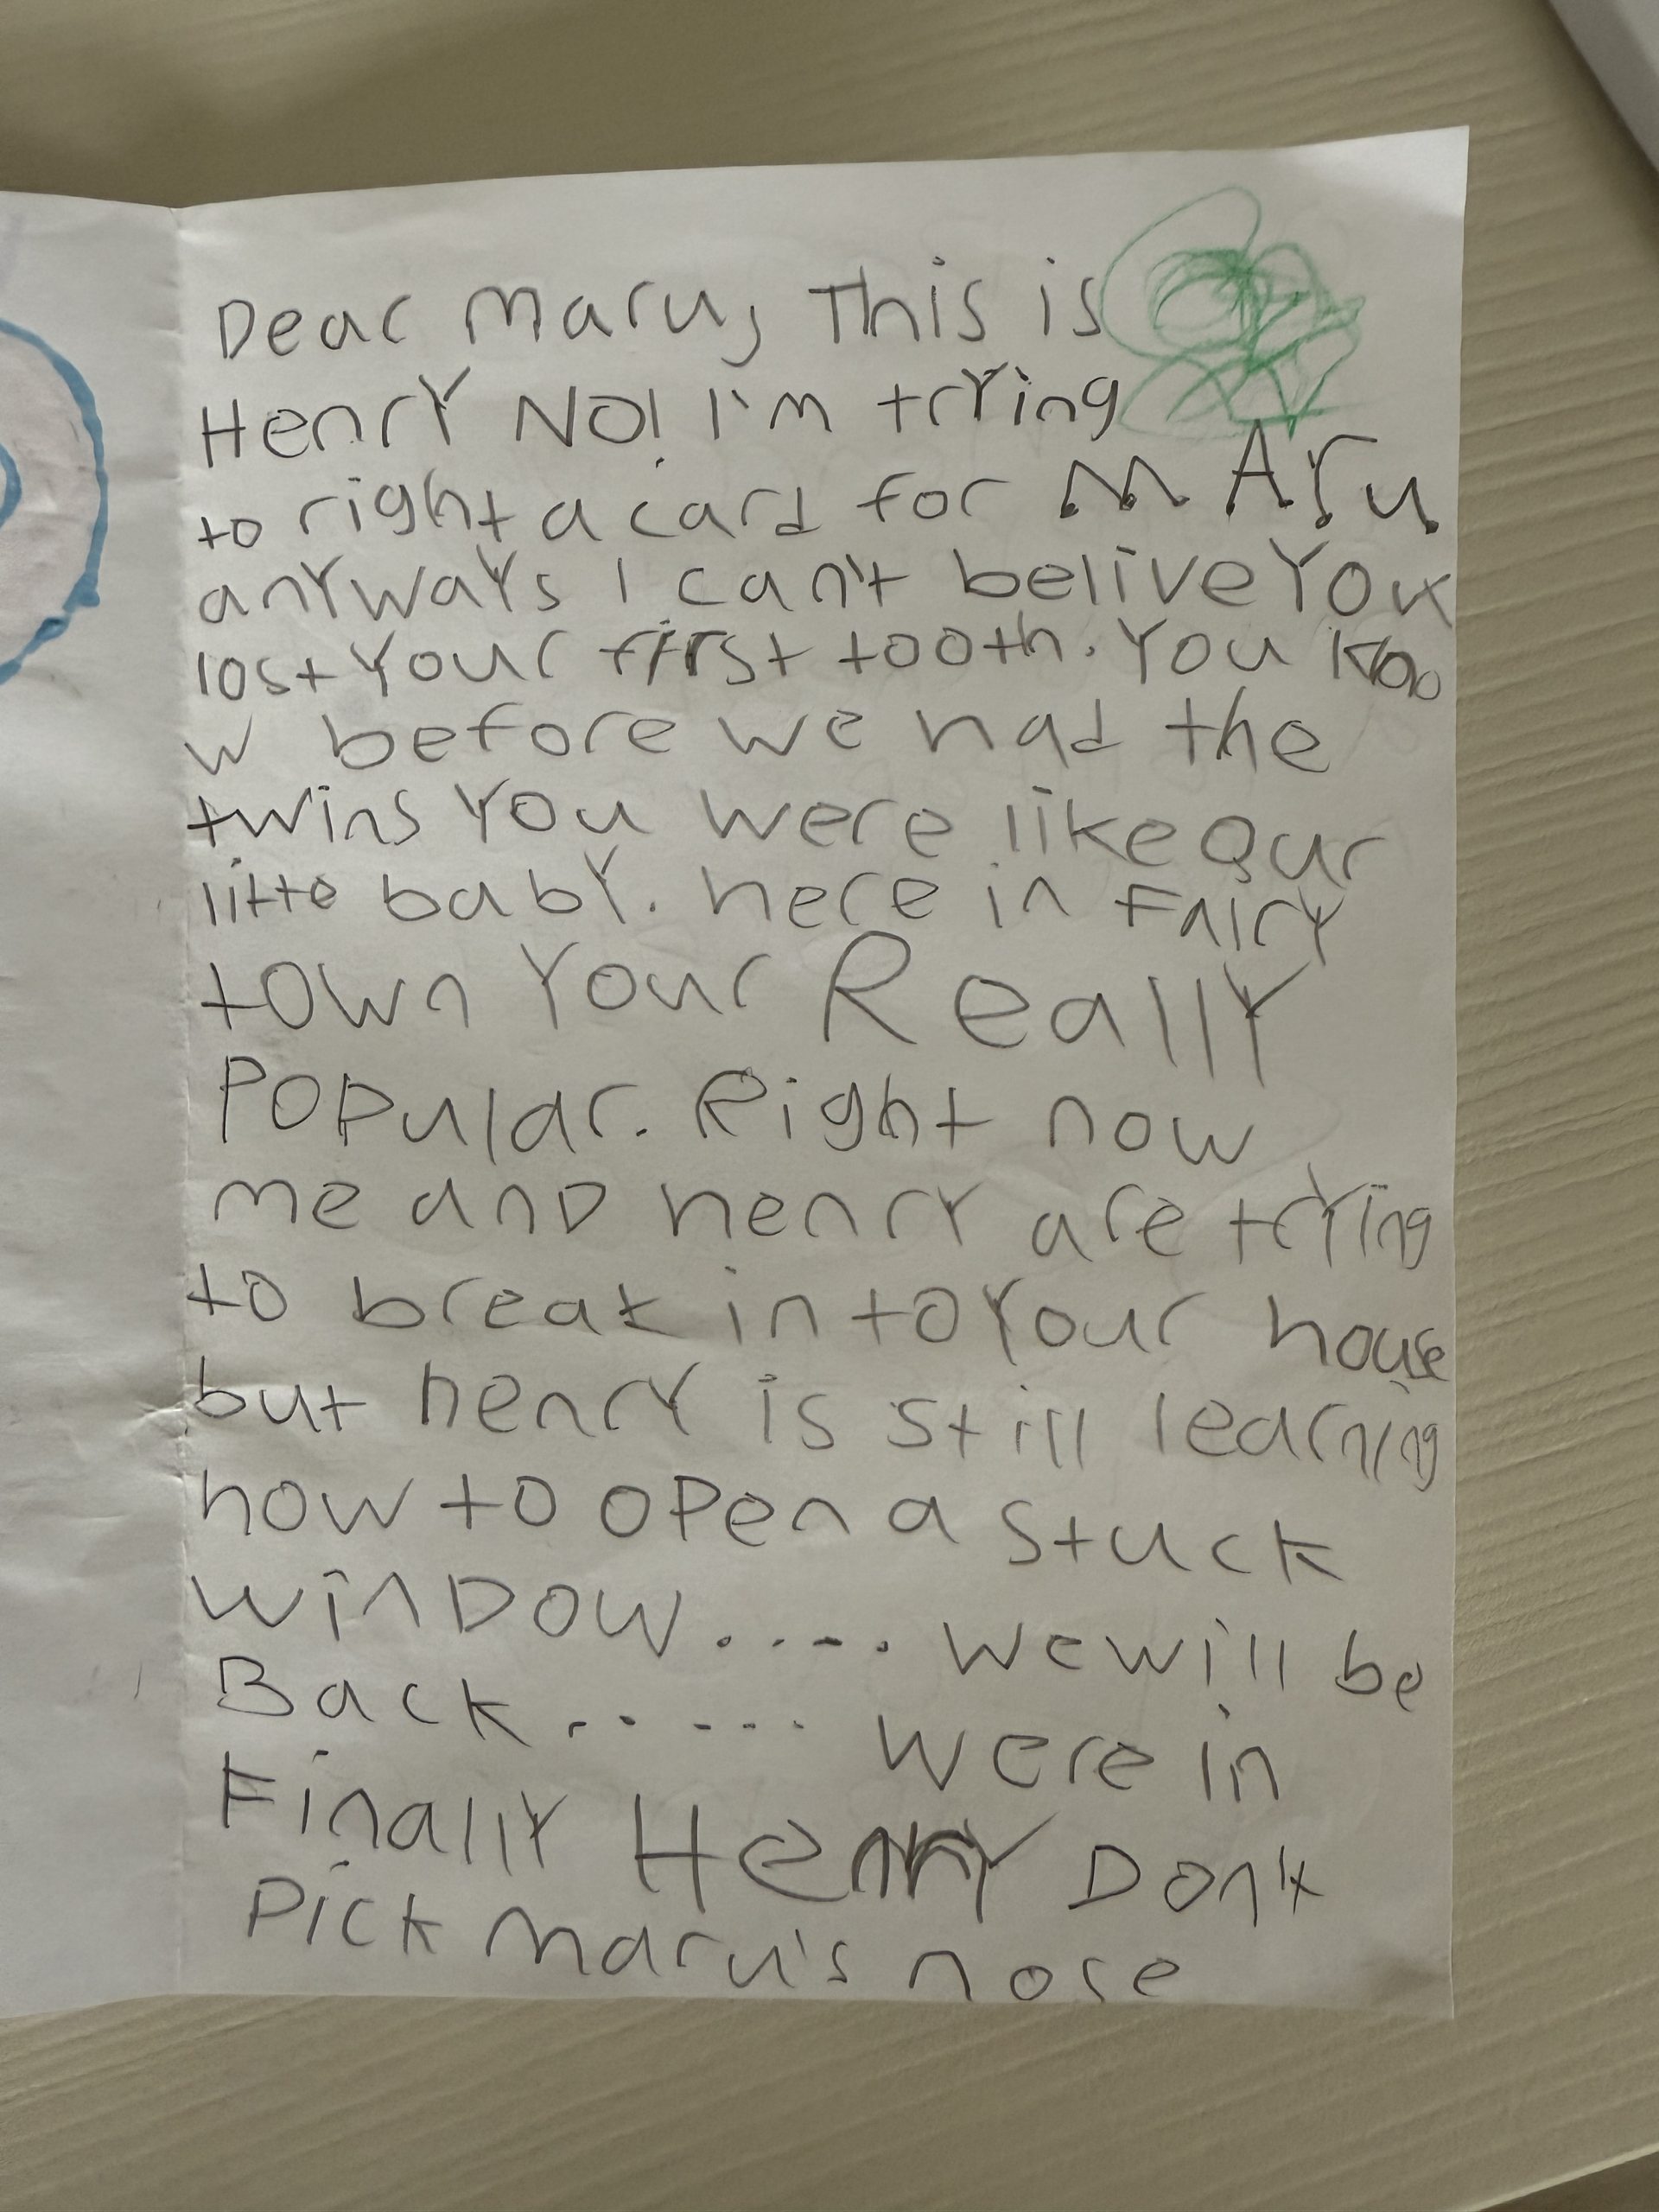 Dear Maru, This is
Henry NO! I'm trying
to right a card for MAru
anyways I can't belive You
lost Your first tooth. You kno
w before we had the
twins You were like Our
litte baby. here in Fairy
town Your Really
Popular. Right now
me and henry are trying
to break in to Your house
but henry is still learning
how to open a stuck
window..... we will be
Back...... were in
Finally Henry Don't
Pick Maru's nose